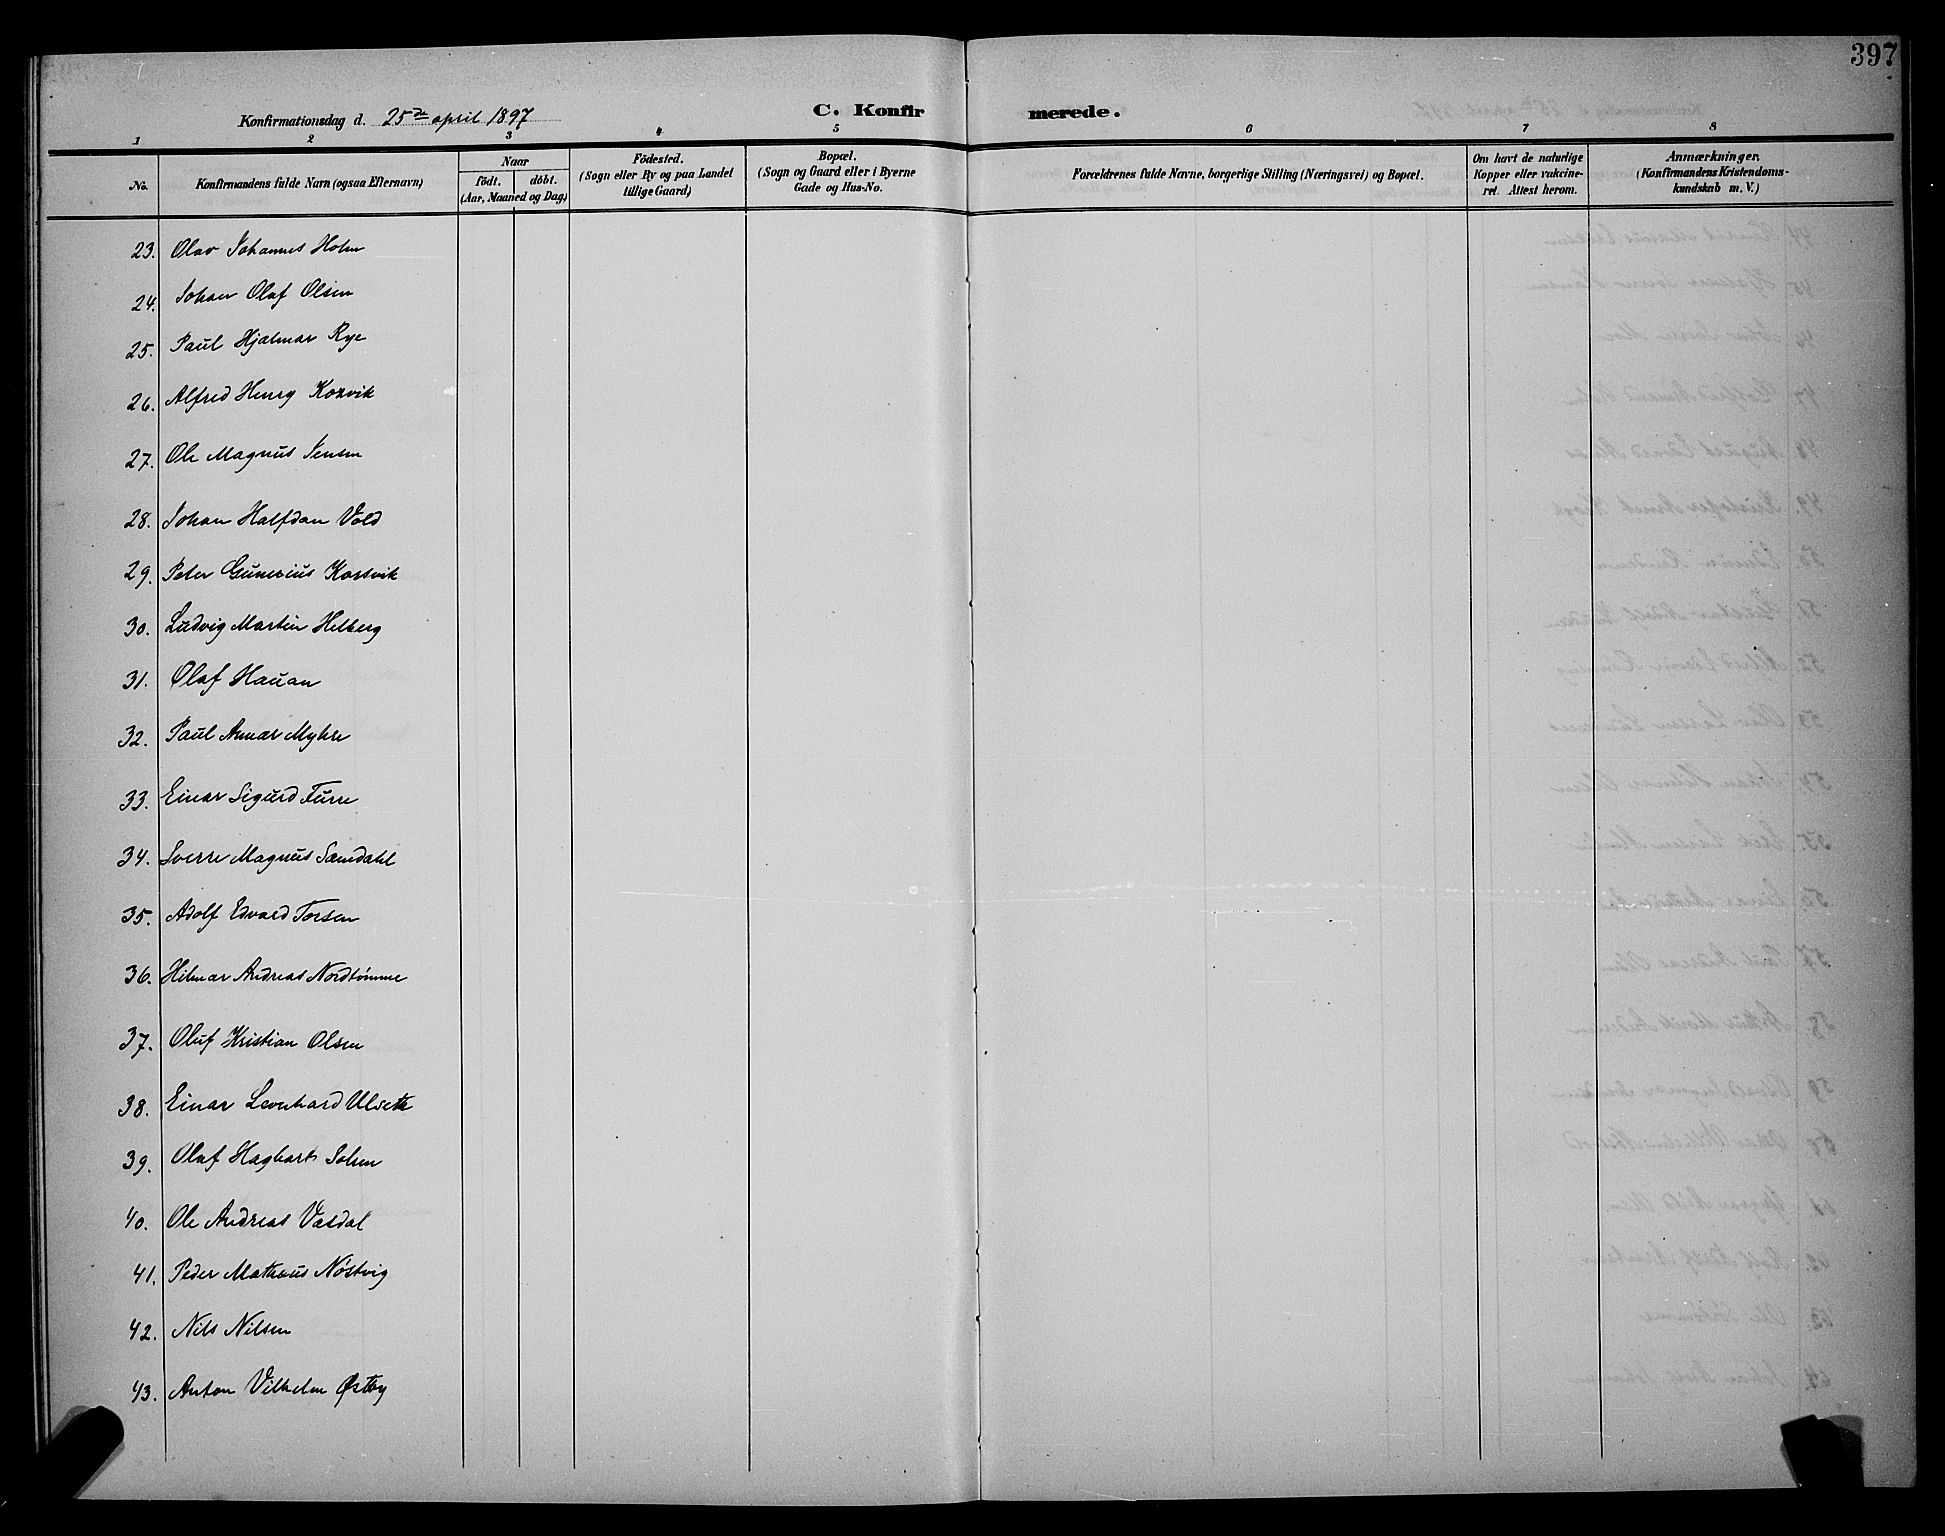 397
Konfirmationsdag d. 25de april 1897
C. Konfirmerede.
1 2 3 4 5 6 7 8
No.
Konfirmandens fulde Navn (ogsaa Efternavn)
Naar
födt. döbt.
(Aar, Maaned og Dag)
Födested.
(Sogn eller By og paa Landet
tillige Gaard)
Bopæl.
(Sogn og Gaard eller i Byerne
Gade og Hus-No.
Forældrenes fulde Navne, borgerlige Stilling (Næringsvei) og Bopæl.
Om havt de naturlige
Kopper eller vakcine-
ret. Attest herom.
Anmærkninger.
(Konfirmandens Kristendoms-
kundskab m. V.)
23. Olav Johannes Holm
24. Johan Olaf Olsen
25. Paul Hjalmar Rye
26. Alfred Henry Korsvik
27. Ole Magnus Jensen
28. Johan Halfdan Vold
29. Peter Gunerius Korsvik
30. Ludvig Martin Helberg
31. Olaf Hauan
32. Paul Annar Myhre
33. Einar Sigurd Furre
34. Sverre Magnus Samdahl
35. Adolf Edvard Torsen
36. Hilmar Andreas Nordtømme
37. Oluf Kristian Olsen
38. Einar Leonhard Ulseth
39. Olaf Hagbart Solem
40. Ole Andreas Væsdal
41. Peder Matheus Nøstvig
42. Nils Nilsen
43. Anton Vilhelm Østby